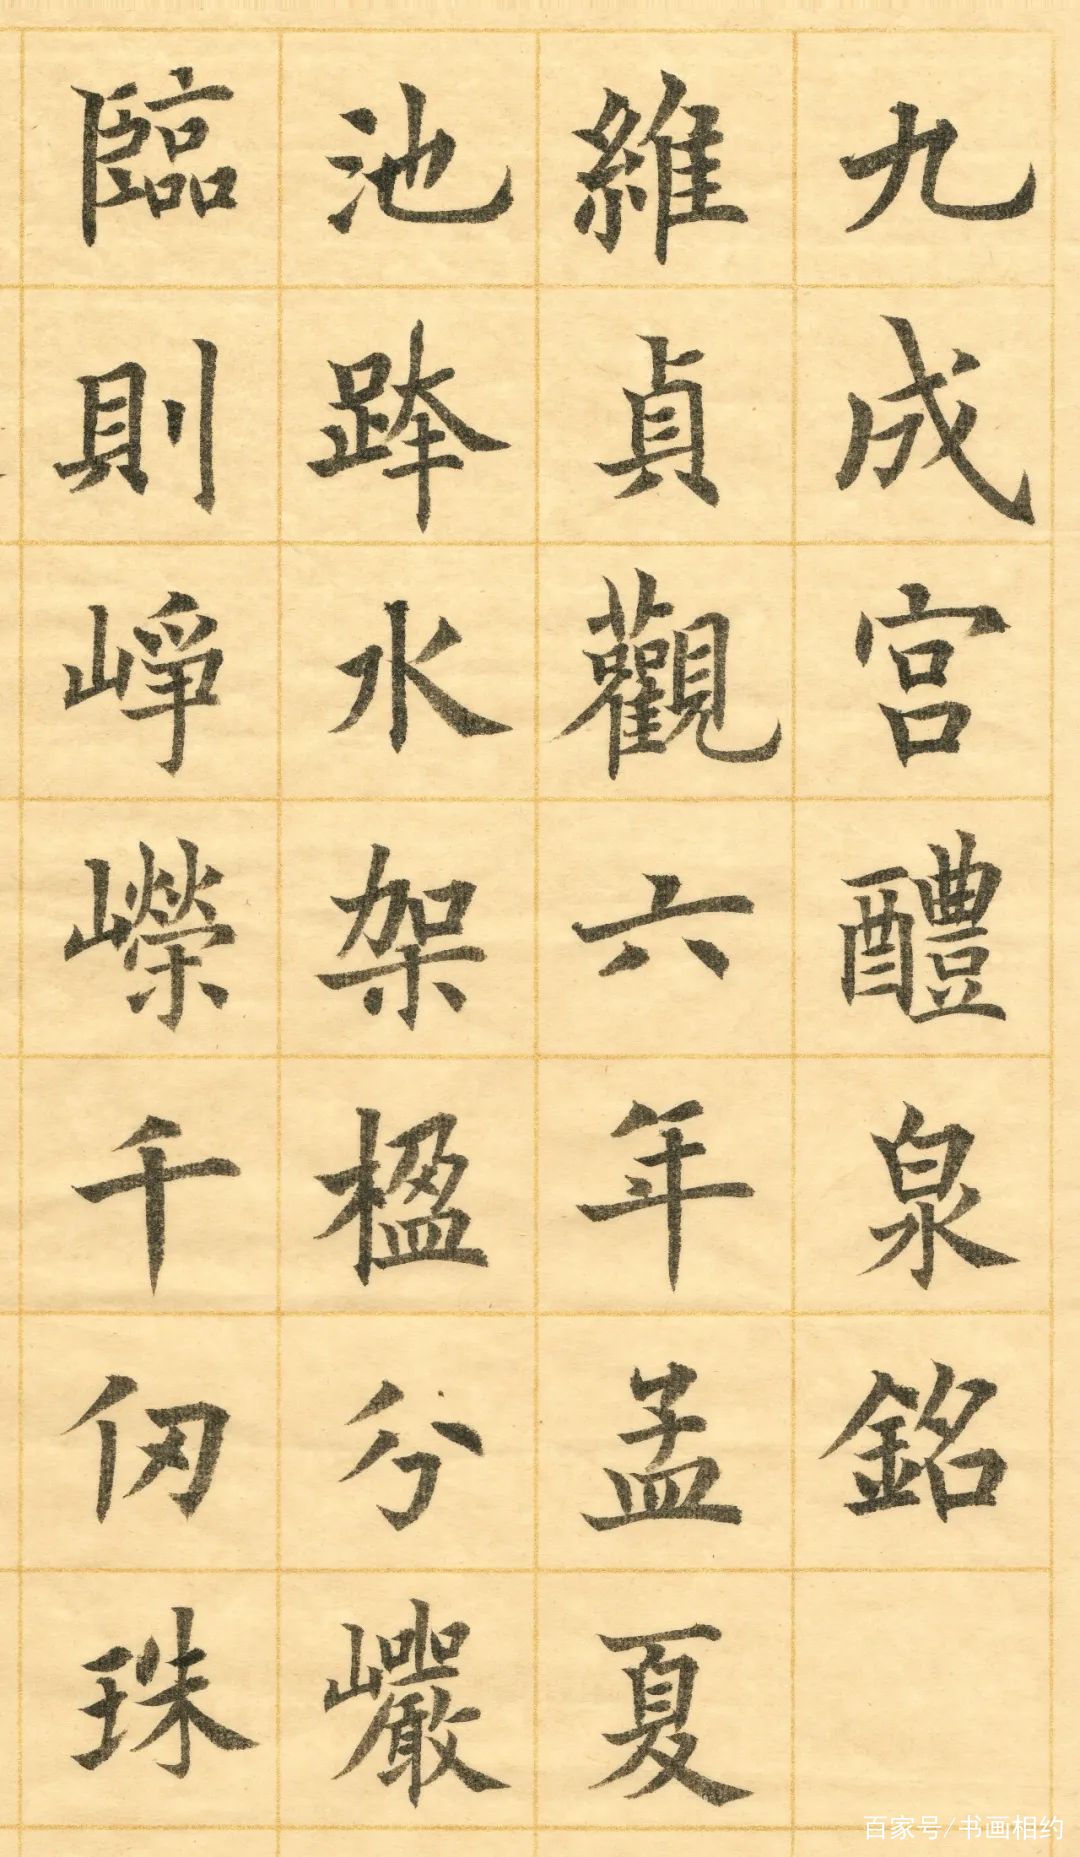 九成宫醴泉銘
維貞觀六年孟夏
池跨水架楹分巖
臨則崢嶸千仞珠
百家号/书画相约